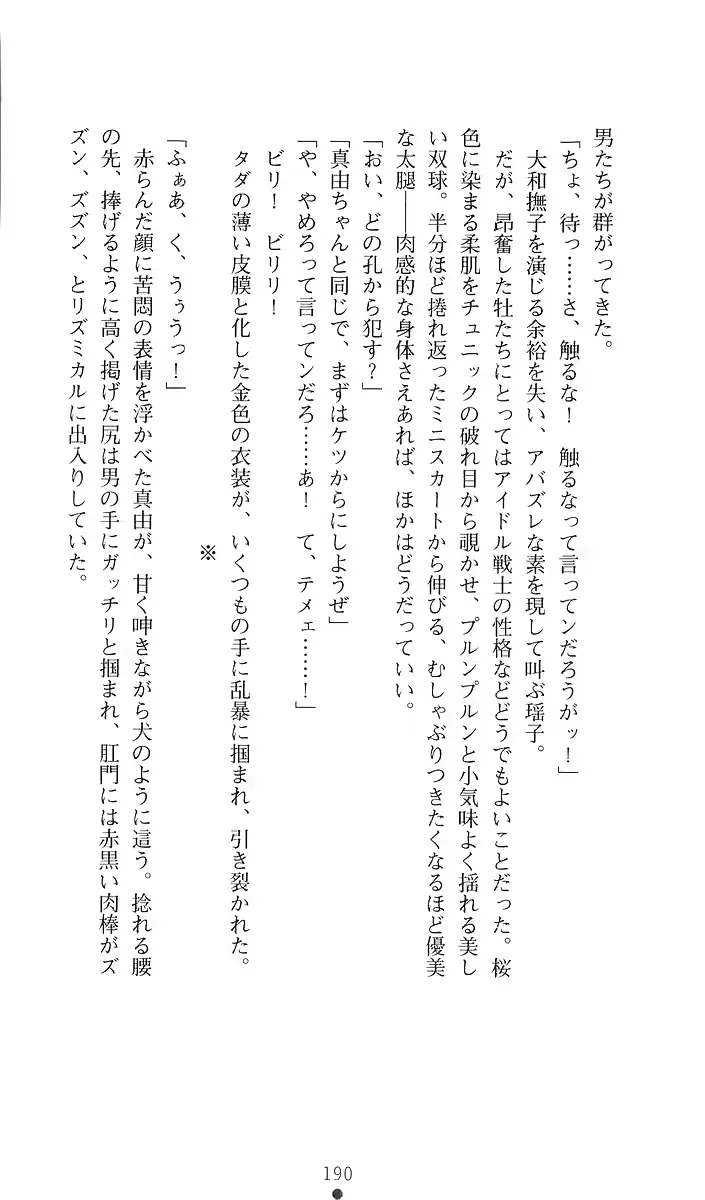 男たちが群がってきた。
「ちょ、待っ……さ、触るな！　触るなって言ってンだろうがッ！」
大和撫子を演じる余裕を失い、アバズレな素を現して叫ぶ瑶子。
だが、昂奮した牡たちにとってはアイドル戦士の性格などどうでもよいことだった。桜
色に染まる柔肌をチュニックの破れ目から覗かせ、プルンプルンと小気味よく揺れる美し
い双球。半分ほど捲れ返ったミニスカートから伸びる、むしゃぶりつきたくなるほど優美
な太腿――肉感的な身体さえあれば、ほかはどうだっていい。
「おい、どの孔から犯す？」
「真由ちゃんと同じで、まずはケツからにしようぜ」
「や、やめろって言ってンだろ……あ！　て、テメェ……！」
ビリ！　ビリリ！
タダの薄い皮膜と化した金色の衣装が、いくつもの手に乱暴に掴まれ、引き裂かれた。
※
「ふぁあ、く、うぅうっ！」
赤らんだ顔に苦悶の表情を浮かべた真由が、甘く呻きながら犬のように這う。捻れる腰
の先、捧げるように高く掲げた尻は男の手にガッチリと掴まれ、肛門には赤黒い肉棒がズ
ズン、ズズン、とリズミカルに出入りしていた。
190